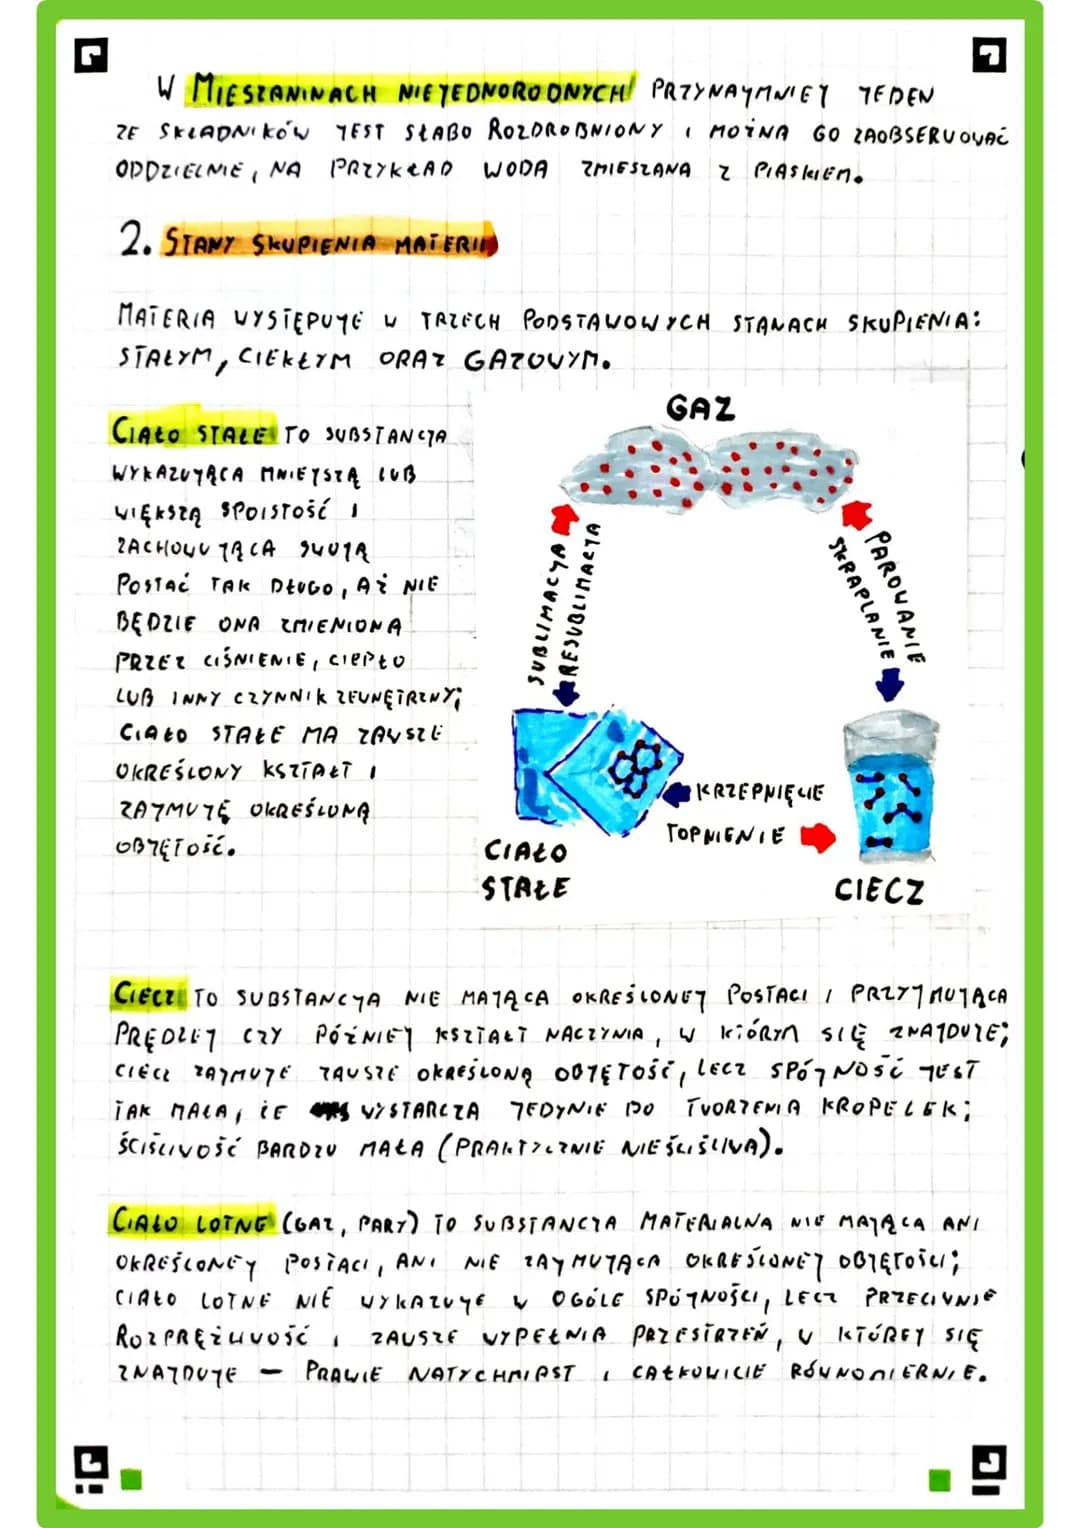 W MIESZANINACH NIEJEDNORODNYCH PRZYNAJMNIEJ JEDEN
ZE SKŁADNIKÓW JEST SŁABO ROZDROBNIONY I MOŻNA GO ZAOBSERWOWAĆ
ODDZIELNIE, NA PRZYKŁAD WODA ZMIESZANA Z PIASKIEM.
2. STANY SKUPIENIA MATERII
MATERIA WYSTĘPUJE W TRZECH PODSTAWOWYCH STANACH SKUPIENIA:
STAŁYM, CIEKŁYM ORAZ GAZOWYM.
CIAŁO STAŁE TO SUBSTANCJA
WYKAZUJĄCA MNIEJSZĄ LUB
WIĘKSZĄ SPOISTOŚĆ I
ZACHOWUJĄCA SWOJĄ
POSTAĆ TAK DŁUGO, AŻ NIE
BĘDZIE ONA ZMIENIONA
PRZEZ CIŚNIENIE, CIEPŁO
LUB INNY CZYNNIK ZEWNĘTRZNY;
CIAŁO STAŁE MA ZAWSZE
OKREŚLONY KSZTAŁT I
ZAJMUJĘ OKREŚLONĄ
OBJĘTOŚĆ.
GAZ
SUBLIMACJA
RESUBLIMACJA
PAROWANIE
SKRAPLANIE
KRZEPNIĘCIE
TOPNIENIE
CIAŁO
STAŁE
CIECZ
CIECZ TO SUBSTANCJA NIE MAJĄCA OKREŚLONEJ POSTACI I PRZYJMUJĄCA
PRĘDZEJ CZY PÓŹNIEJ KSZTAŁT NACZYNIA, W KTÓRYM SIĘ ZNAJDUJE;
CIECZ ZAJMUJE ZAWSZE OKREŚLONĄ OBJĘTOŚĆ, LECZ SPÓJNOŚĆ JEST
TAK MAŁA, ŻE WYSTARCZA JEDYNIE DO TWORZENIA KROPELEK;
ŚCIŚLIWOŚĆ BARDZO MAŁA (PRAKTYCZNIE NIEŚCIŚLIWA).
CIAŁO LOTNE (GAZ, PARY) TO SUBSTANCJA MATERIALNA NIE MAJĄCA ANI
OKREŚLONEJ POSTACI, ANI NIE ZAJMUJĄCA OKREŚLONEJ OBJĘTOŚCI;
CIAŁO LOTNE NIE WYKAZUJE W OGÓLE SPÓJNOŚCI, LECZ PRZECIWNIE
ROZPRĘŻLIWOŚĆ I ZAWSZE WYPEŁNIA PRZESTRZEŃ, W KTÓREJ SIĘ
ZNAJDUJE – PRAWIE NATYCHMIAST I CAŁKOWICIE RÓWNOMIERNIE.